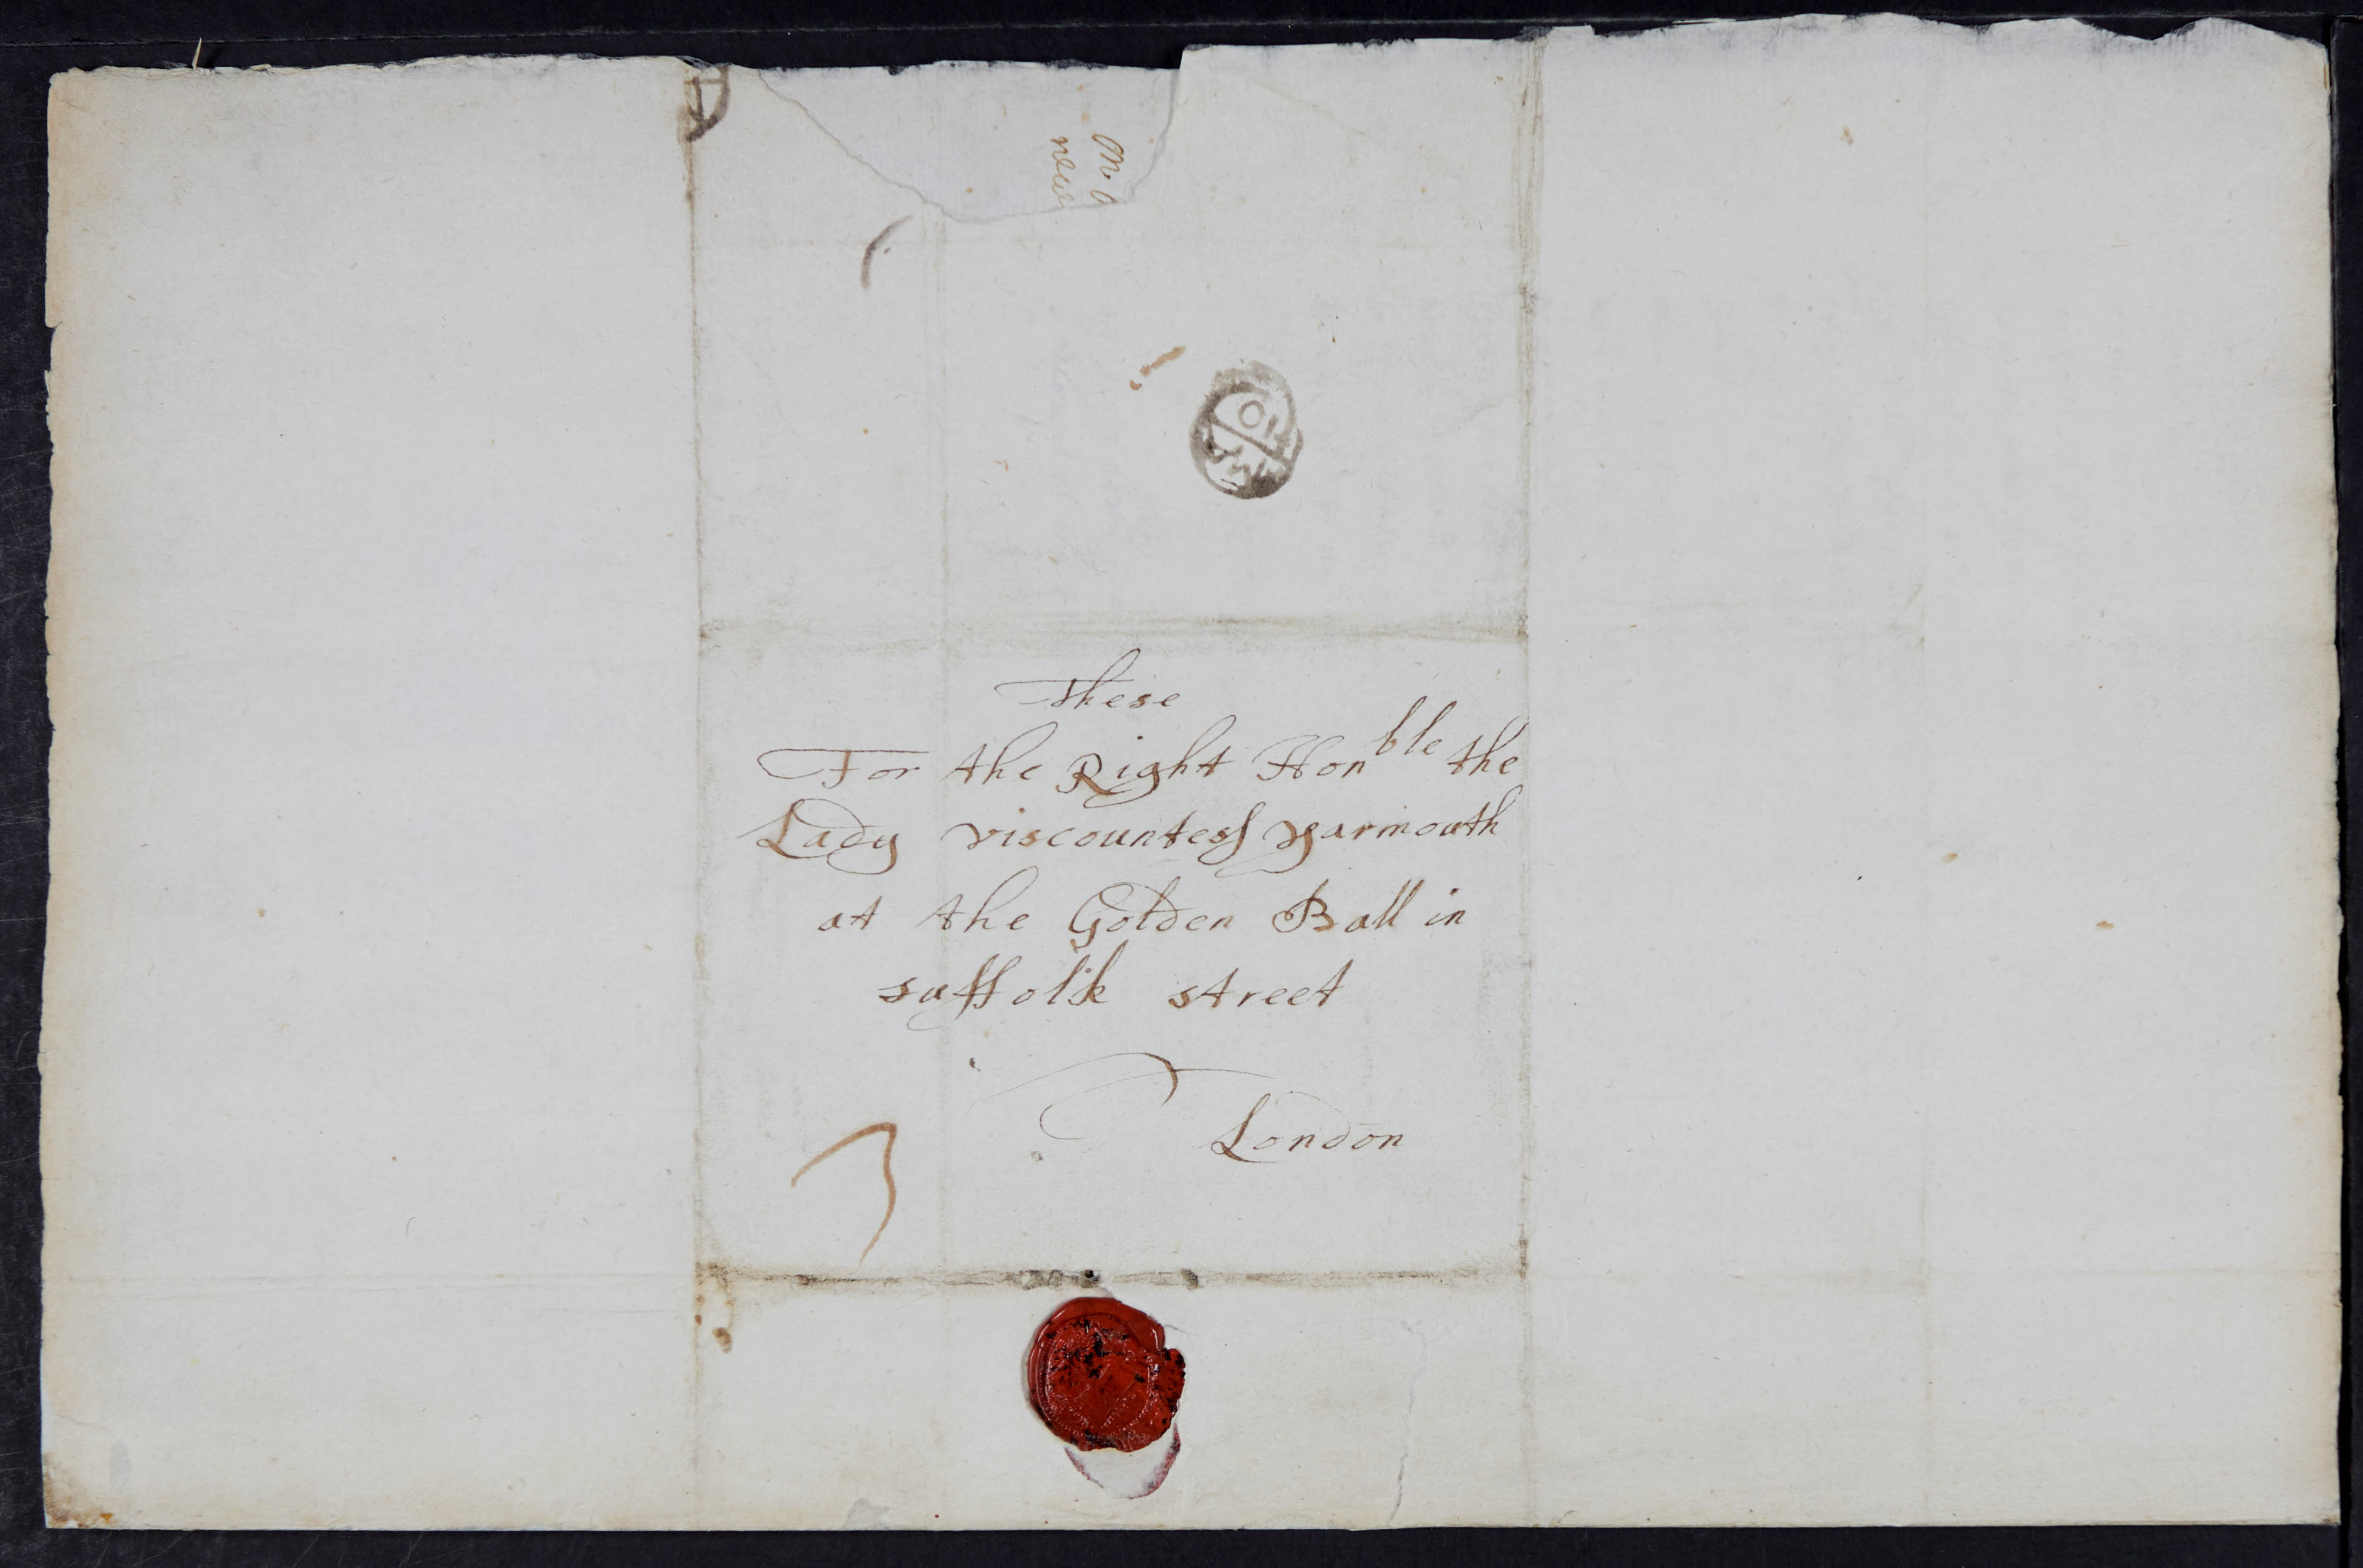 These
For the Right Honble the
Lady viscountess yarmouth
at the Golden Ball in
suffolk street
London